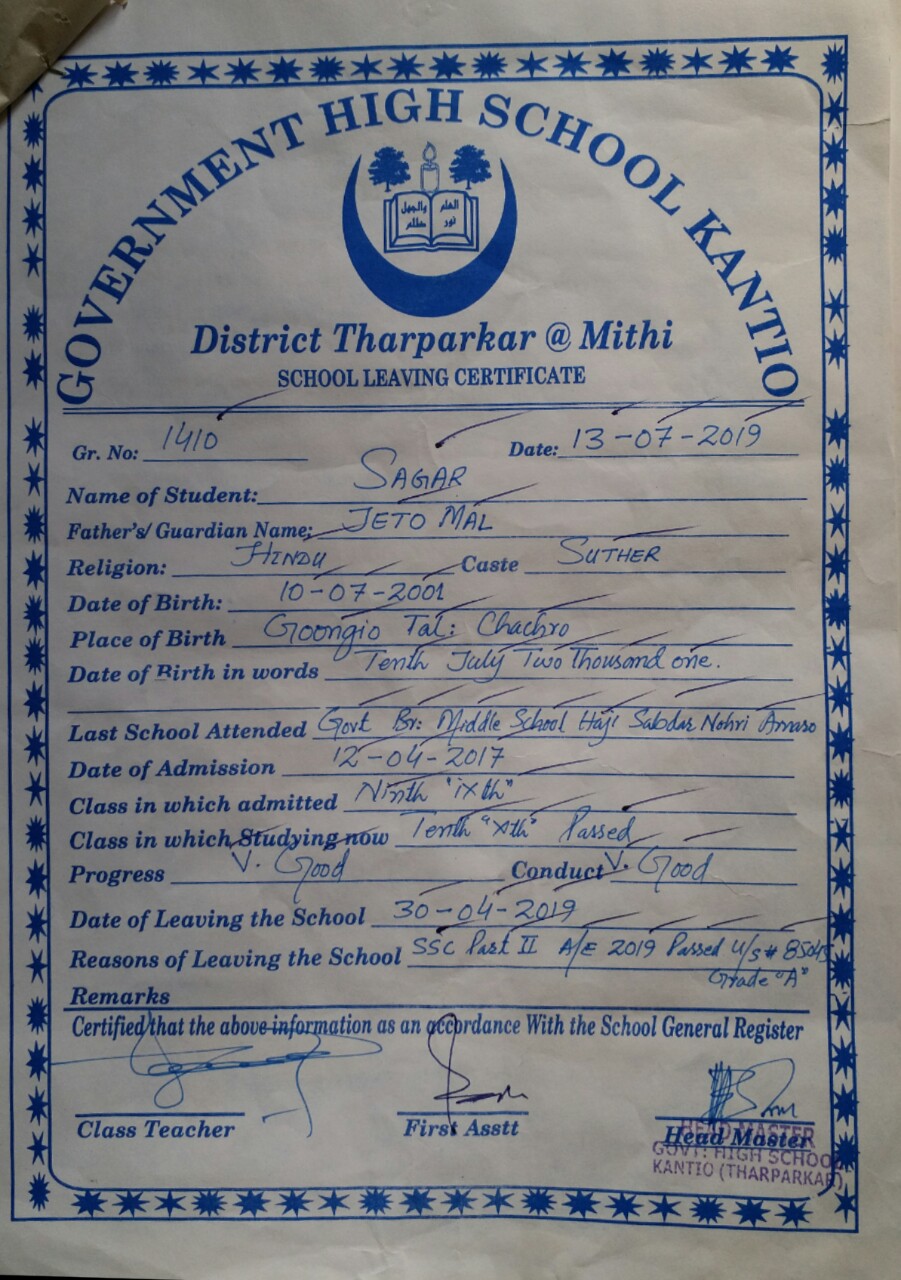 GOVERNMENT HIGH SCHOOL KANTIO
والجهل العلم
ظلم نور
District Tharparkar @ Mithi
SCHOOL LEAVING CERTIFICATE
Gr. No: 1410 Date: 13-07-2019
Name of Student: SAGAR
Father's/ Guardian Name: JETO MAL
Religion: HINDU Caste SUTHER
Date of Birth: 10-07-2001
Place of Birth Goongio Tal: Chachro
Date of Birth in words Tenth July Two Thousand one.
Last School Attended Govt Br: Middle School Haji Sabdar Nohri Amraso
Date of Admission 12-04-2017
Class in which admitted Ninth "iXth"
Class in which Studying now Tenth "Xth" Passed
Progress V. Good Conduct V. Good
Date of Leaving the School 30-04-2019
Reasons of Leaving the School SSC Part II A/E 2019 Passed U/S # 85045
Grade "A"
Remarks
Certified that the above information as an accordance With the School General Register
Class Teacher First Asstt Head Master
HEAD MASTER
GOVT: HIGH SCHOOL
KANTIO (THARPARKAR)